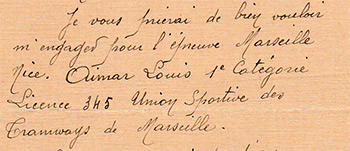 Je vous prierai de bien vouloir
m'engager pour l'épreuve Marseille
Nice. Ouimar Louis 1e Catégorie
Licence 345 Union Sportive des
Tramways de Marseille.